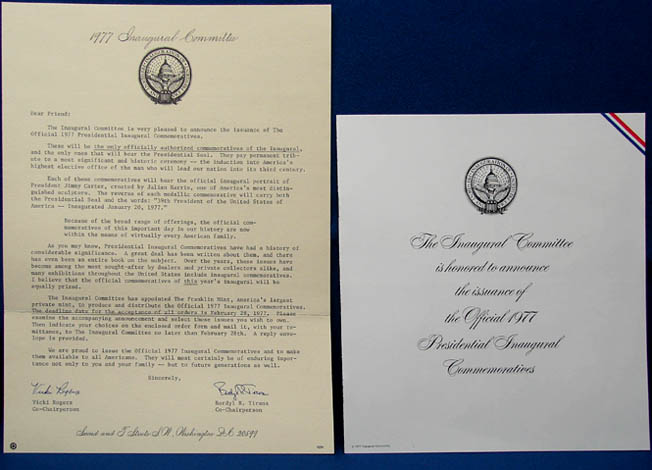 1977 Inaugural Committee
Dear Friend:
The Inaugural Committee is very pleased to announce the issuance of The
Official 1977 Presidential Inaugural Commemoratives.
These will be the only officially authorized commemoratives of the Inaugural,
and the only ones that will bear the Presidential Seal. They pay permanent trib-
ute to a most significant and historic ceremony -- the induction into America's
highest elective office of the man who will lead our nation into its third century.
Each of these commemoratives will bear the official inaugural portrait of
President Jimmy Carter, created by Julian Harris, one of America's most distin-
guished sculptors. The reverse of each medallic commemorative will carry both
the Presidential Seal and the words: "39th President of the United States of
America -- Inaugurated January 20, 1977."
Because of the broad range of offerings, the official com-
memoratives of this important day in our history are now
within the means of virtually every American family.
As you may know, Presidential Inaugural Commemoratives have had a history of
considerable significance. A great deal has been written about them, and there
has even been an entire book on the subject. Over the years, these issues have
become among the most sought-after by dealers and private collectors alike, and
many exhibitions throughout the United States include inaugural commemoratives.
I believe that the official commemoratives of this year's inaugural will be
equally prized.
The Inaugural Committee has appointed The Franklin Mint, America's largest
private mint, to produce and distribute the Official 1977 Inaugural Commemoratives.
The deadline date for the acceptance of all orders is February 28, 1977. Please
examine the accompanying announcement and select those issues you wish to own.
Then indicate your choices on the enclosed order form and mail it, with your re-
mittance, to The Inaugural Committee no later than February 28th. A reply enve-
lope is provided.
We are proud to issue the Official 1977 Inaugural Commemoratives and to make
them available to all Americans. They will most certainly be of enduring impor-
tance not only to you and your family -- but to future generations as well.
Sincerely,
Vicki Rogers
Bardyl R. Tirana
Vicki Rogers
Co-Chairperson
Bardyl R. Tirana
Co-Chairperson
Second and T Streets S.W., Washington D.C. 20599
The Inaugural Committee
is honored to announce
the issuance of
the Official 1977
Presidential Inaugural
Commemoratives